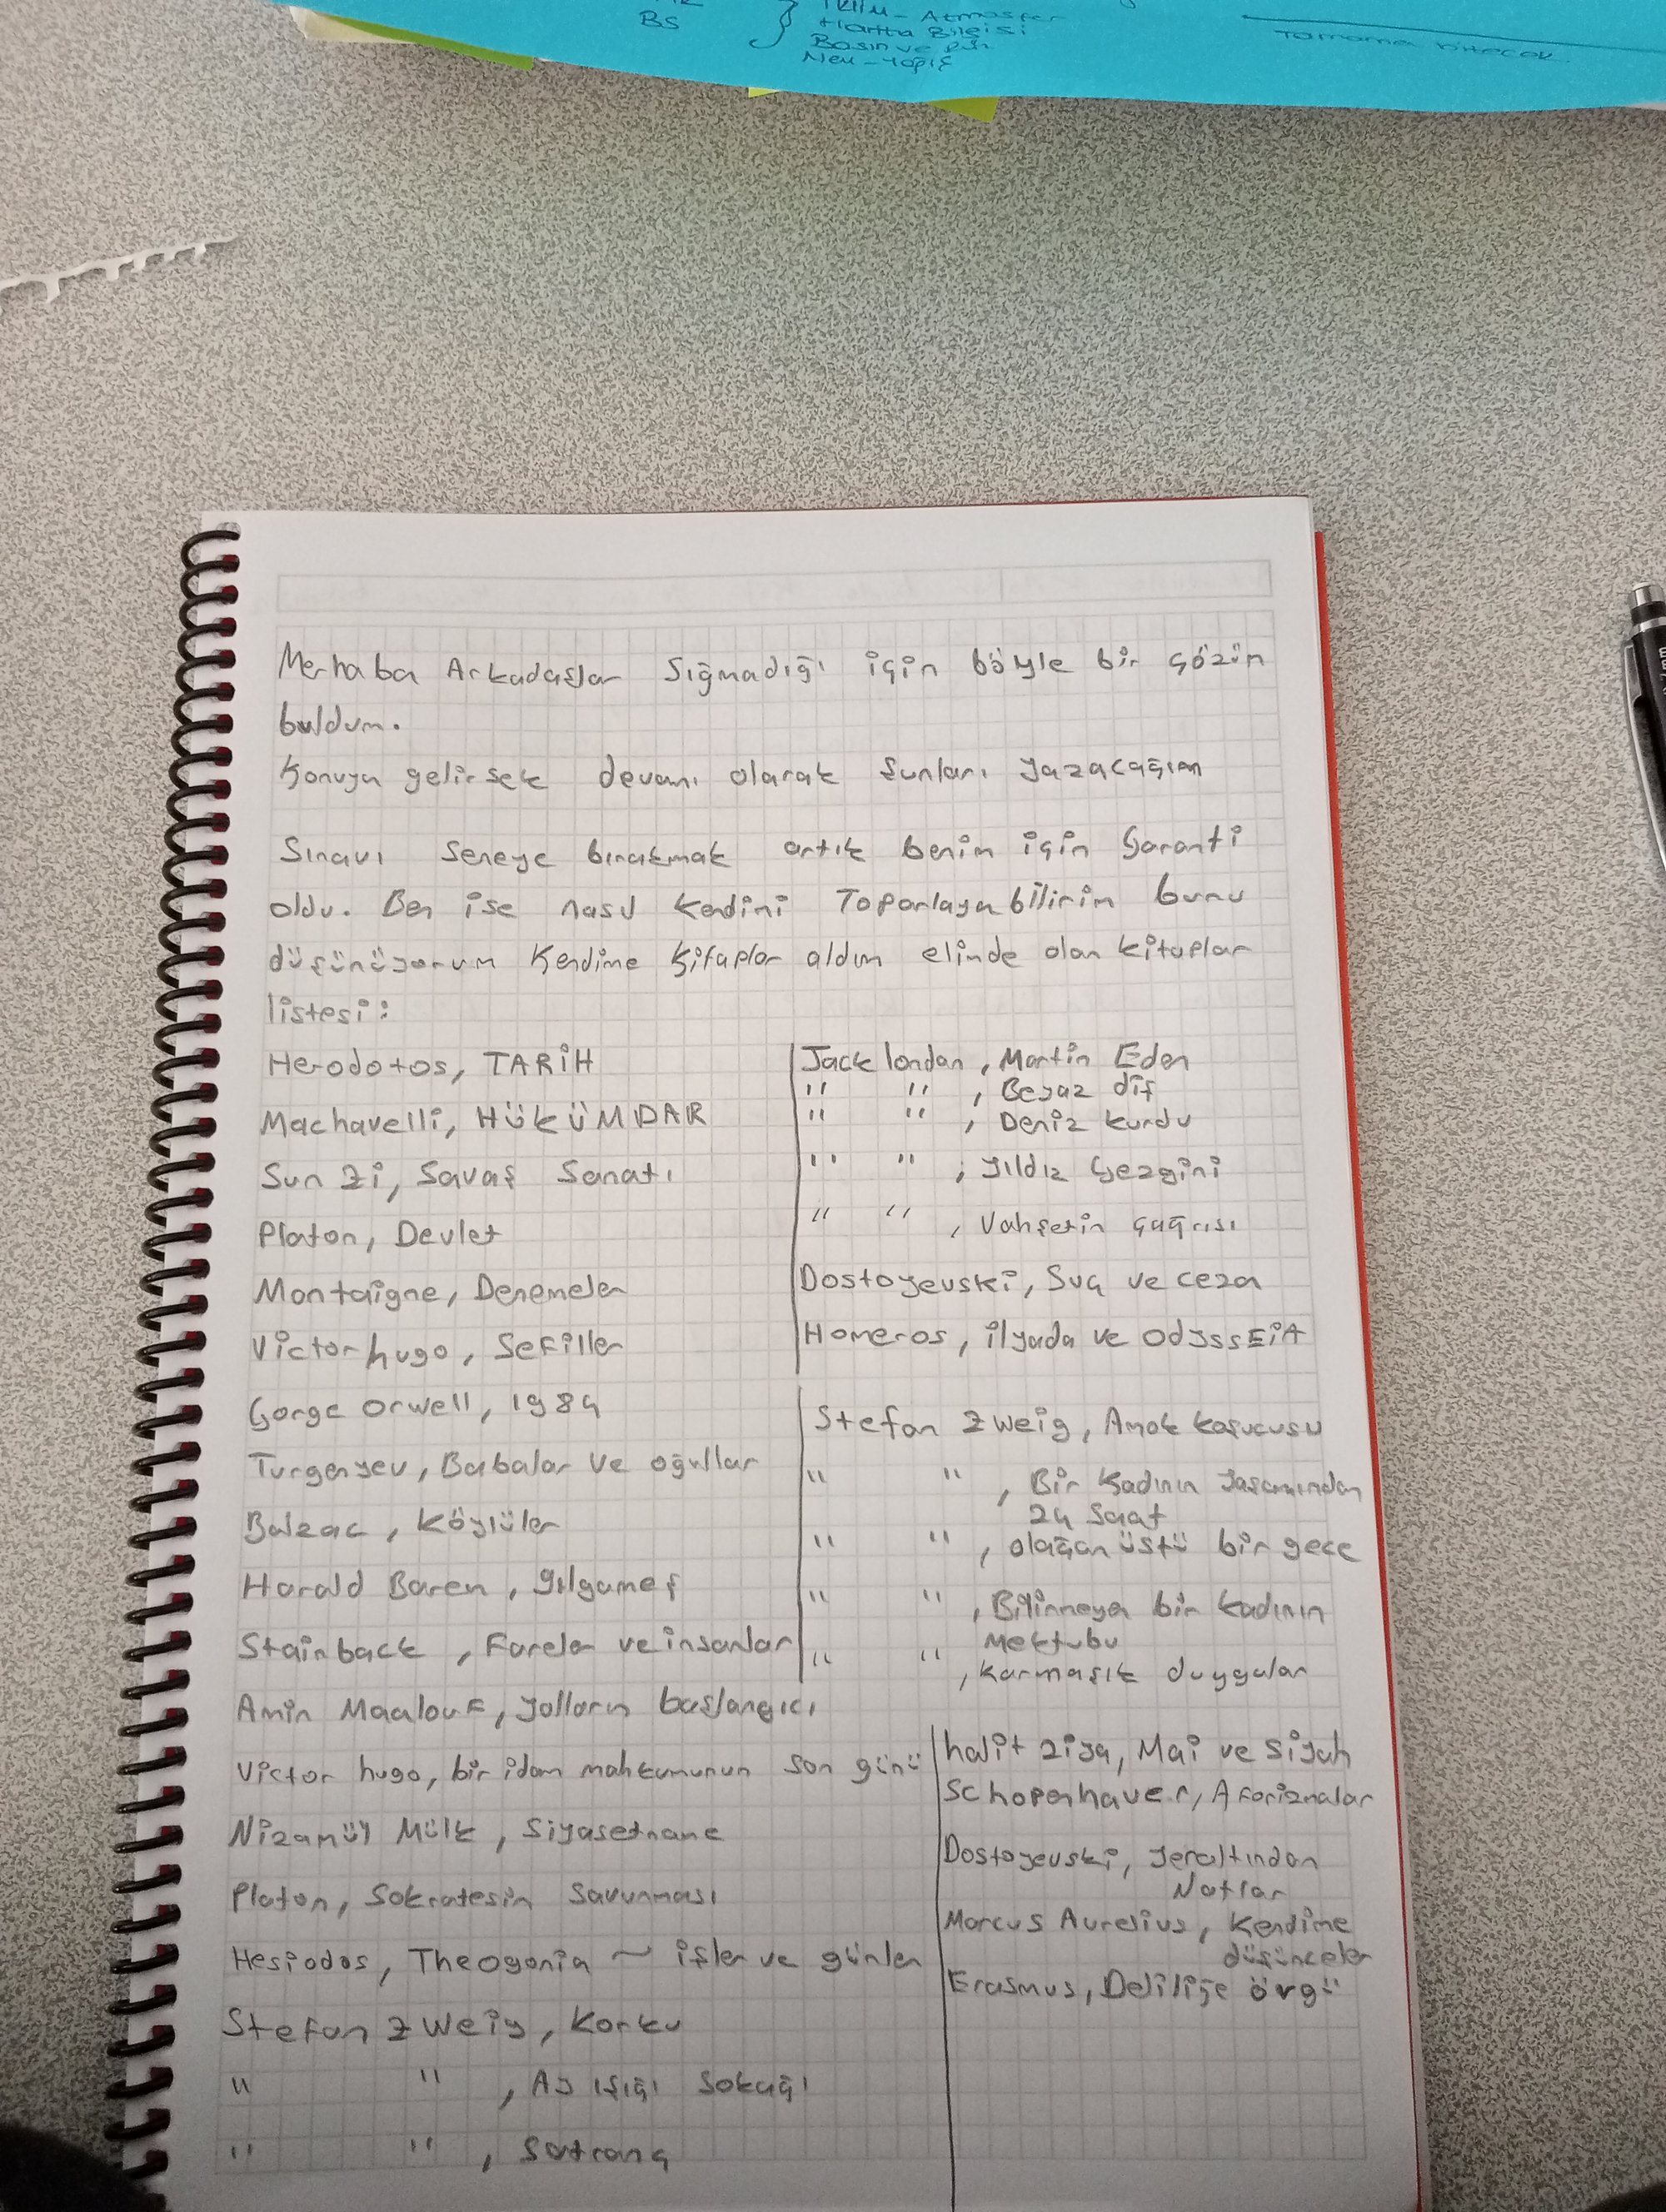 BS
İklim - Atmosfer
Harita Bilgisi
Basınç ve
Tamamı bitecek
Merhaba Arkadaşlar Sığmadığı için böyle bir çözüm
buldum.
Konuya gelirsek devamı olarak Şunları yazacağım
Sınavı Seneye bırakmak artık benim için Garanti
oldu. Ben ise nasıl kendimi Toparlayabilirim bunu
düşünüyorum Kendime Kitaplar aldım elimde olan kitaplar
listesi:
Herodotos, TARİH
Machavelli, HÜKÜMDAR
Sun Zi, Savaş Sanatı
Platon, Devlet
Montaigne, Denemeler
Victor hugo, Sefiller
Gorge Orwell, 1984
Turgenyev, Babalar ve oğullar
Balzac, Köylüler
Harald Baren, gılgameş
Stainback, Fareler ve insanlar
Amin Maalouf, yolların başlangıcı
Victor hugo, bir idam mahkumunun son günü
Nizamül Mülk, Siyasetname
Platon, Sokratesin Savunması
Hesiodos, Theogonia ~ işler ve günler
Stefan Zweig, Korku
" ", Ay ışığı Sokağı
" ", Satranç
Jack londan, Martin Eden
" ", Beyaz diş
" ", Deniz kurdu
" ", yıldız gezgini
" ", Vahşetin çağrısı
Dostoyevski, Suç ve ceza
Homeros, ilyada ve ODYSSEİA
Stefan Zweig, Amok koşucusu
" ", Bir Kadının yaşamından
24 Saat
" ", olağanüstü bir gece
" ", Bilinmeyen bir kadının
Mektubu
" ", karmaşık duygular
halit ziya, Mai ve Siyah
Schopenhauer, Aforizmalar
Dostoyevski, yeraltından
Notlar
Marcus Aurelius, Kendime
düşünceler
Erasmus, Deliliğe övgü